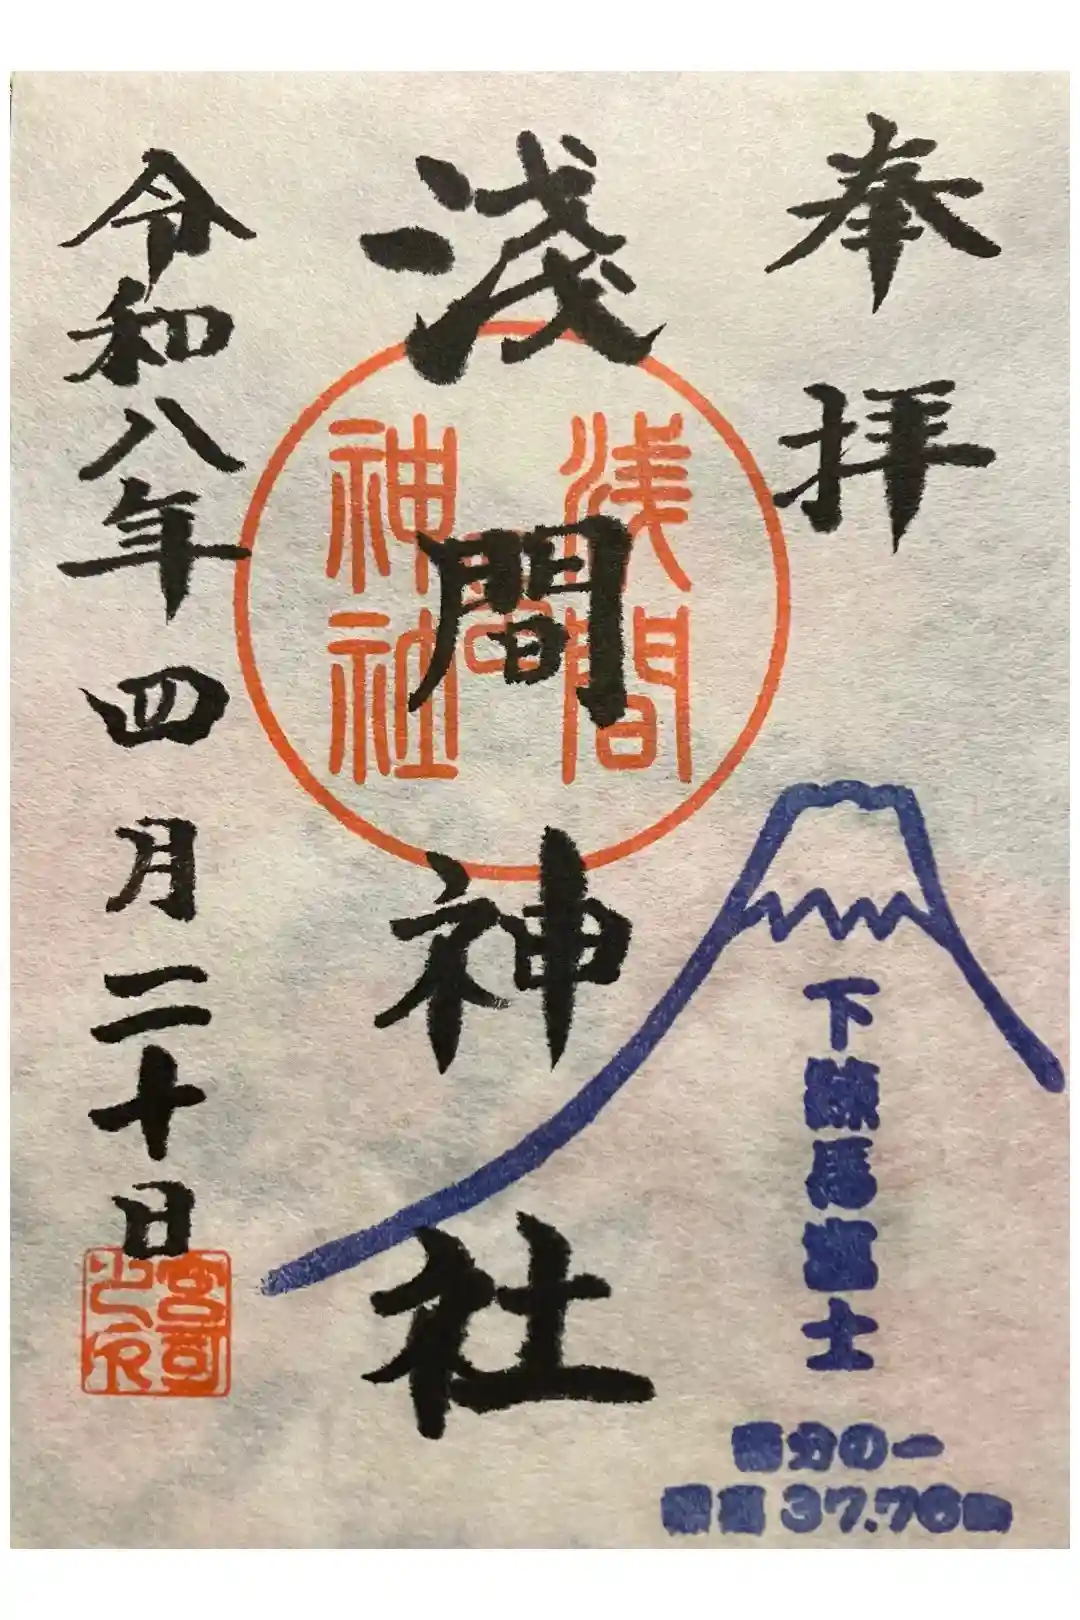 奉拝
淺間神社
令和八年四月二十日
浅間
神社
宮司
之印
下練馬富士
百分の一
標高 37.76m